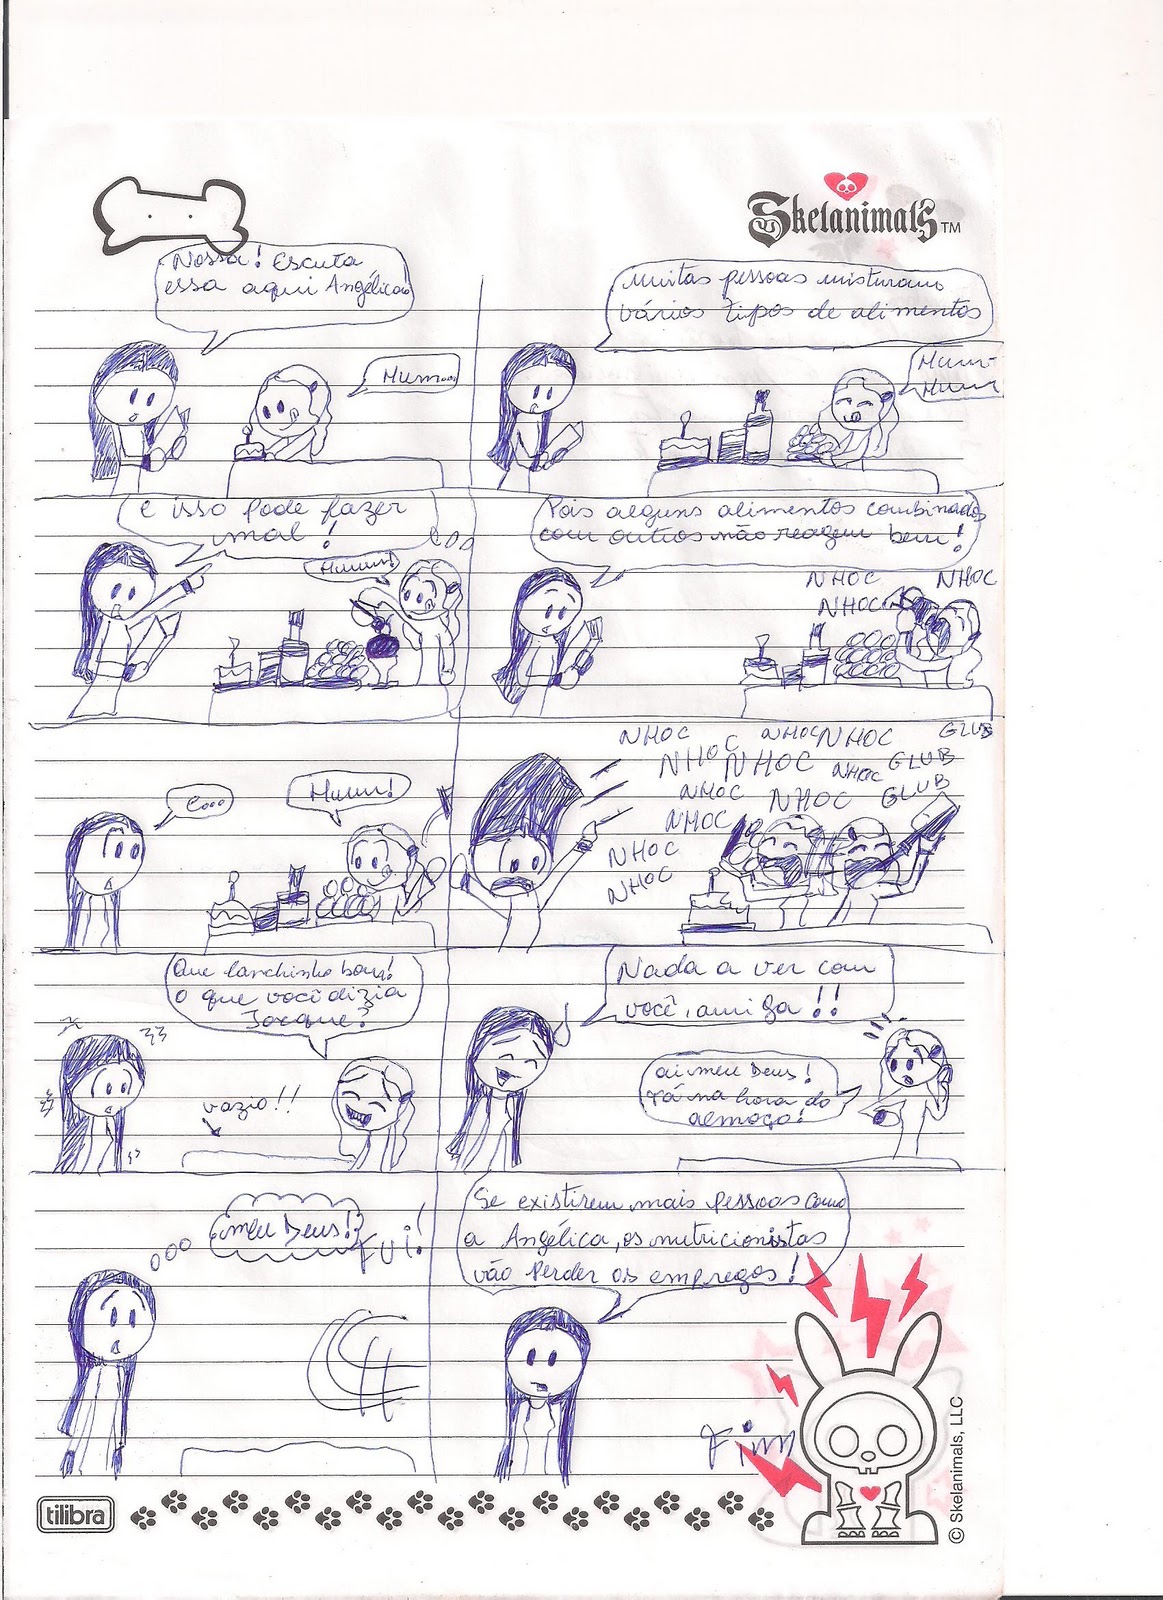 Skelanimals TM
Nossa! Escuta
essa aqui Angélica
Hum...
Muitas pessoas misturam
vários tipos de alimentos
Hum-
Hum
e isso pode fazer
mal!
Humm!
Pois alguns alimentos combinados
com outros não reagem bem!
NHOC
NHOC
NHOC
E...
Humm!
NHOC
NHOC
NHOC
NHOC
NHOC
NHOC
NHOC
NHOC
NHOC
NHOC
NHOC
GLUB
GLUB
GLUB
Que lanchinho bom!
O que você dizia
Jacque?
vazio!!
Nada a ver com
você, amiga!!
ai meu Deus!
Tá na hora do
almoço!
meu Deus!
FUI!
Se existirem mais pessoas como
a Angélica, os nutricionistas
vão perder os empregos!
Fim
tilibra
© Skelanimals, LLC